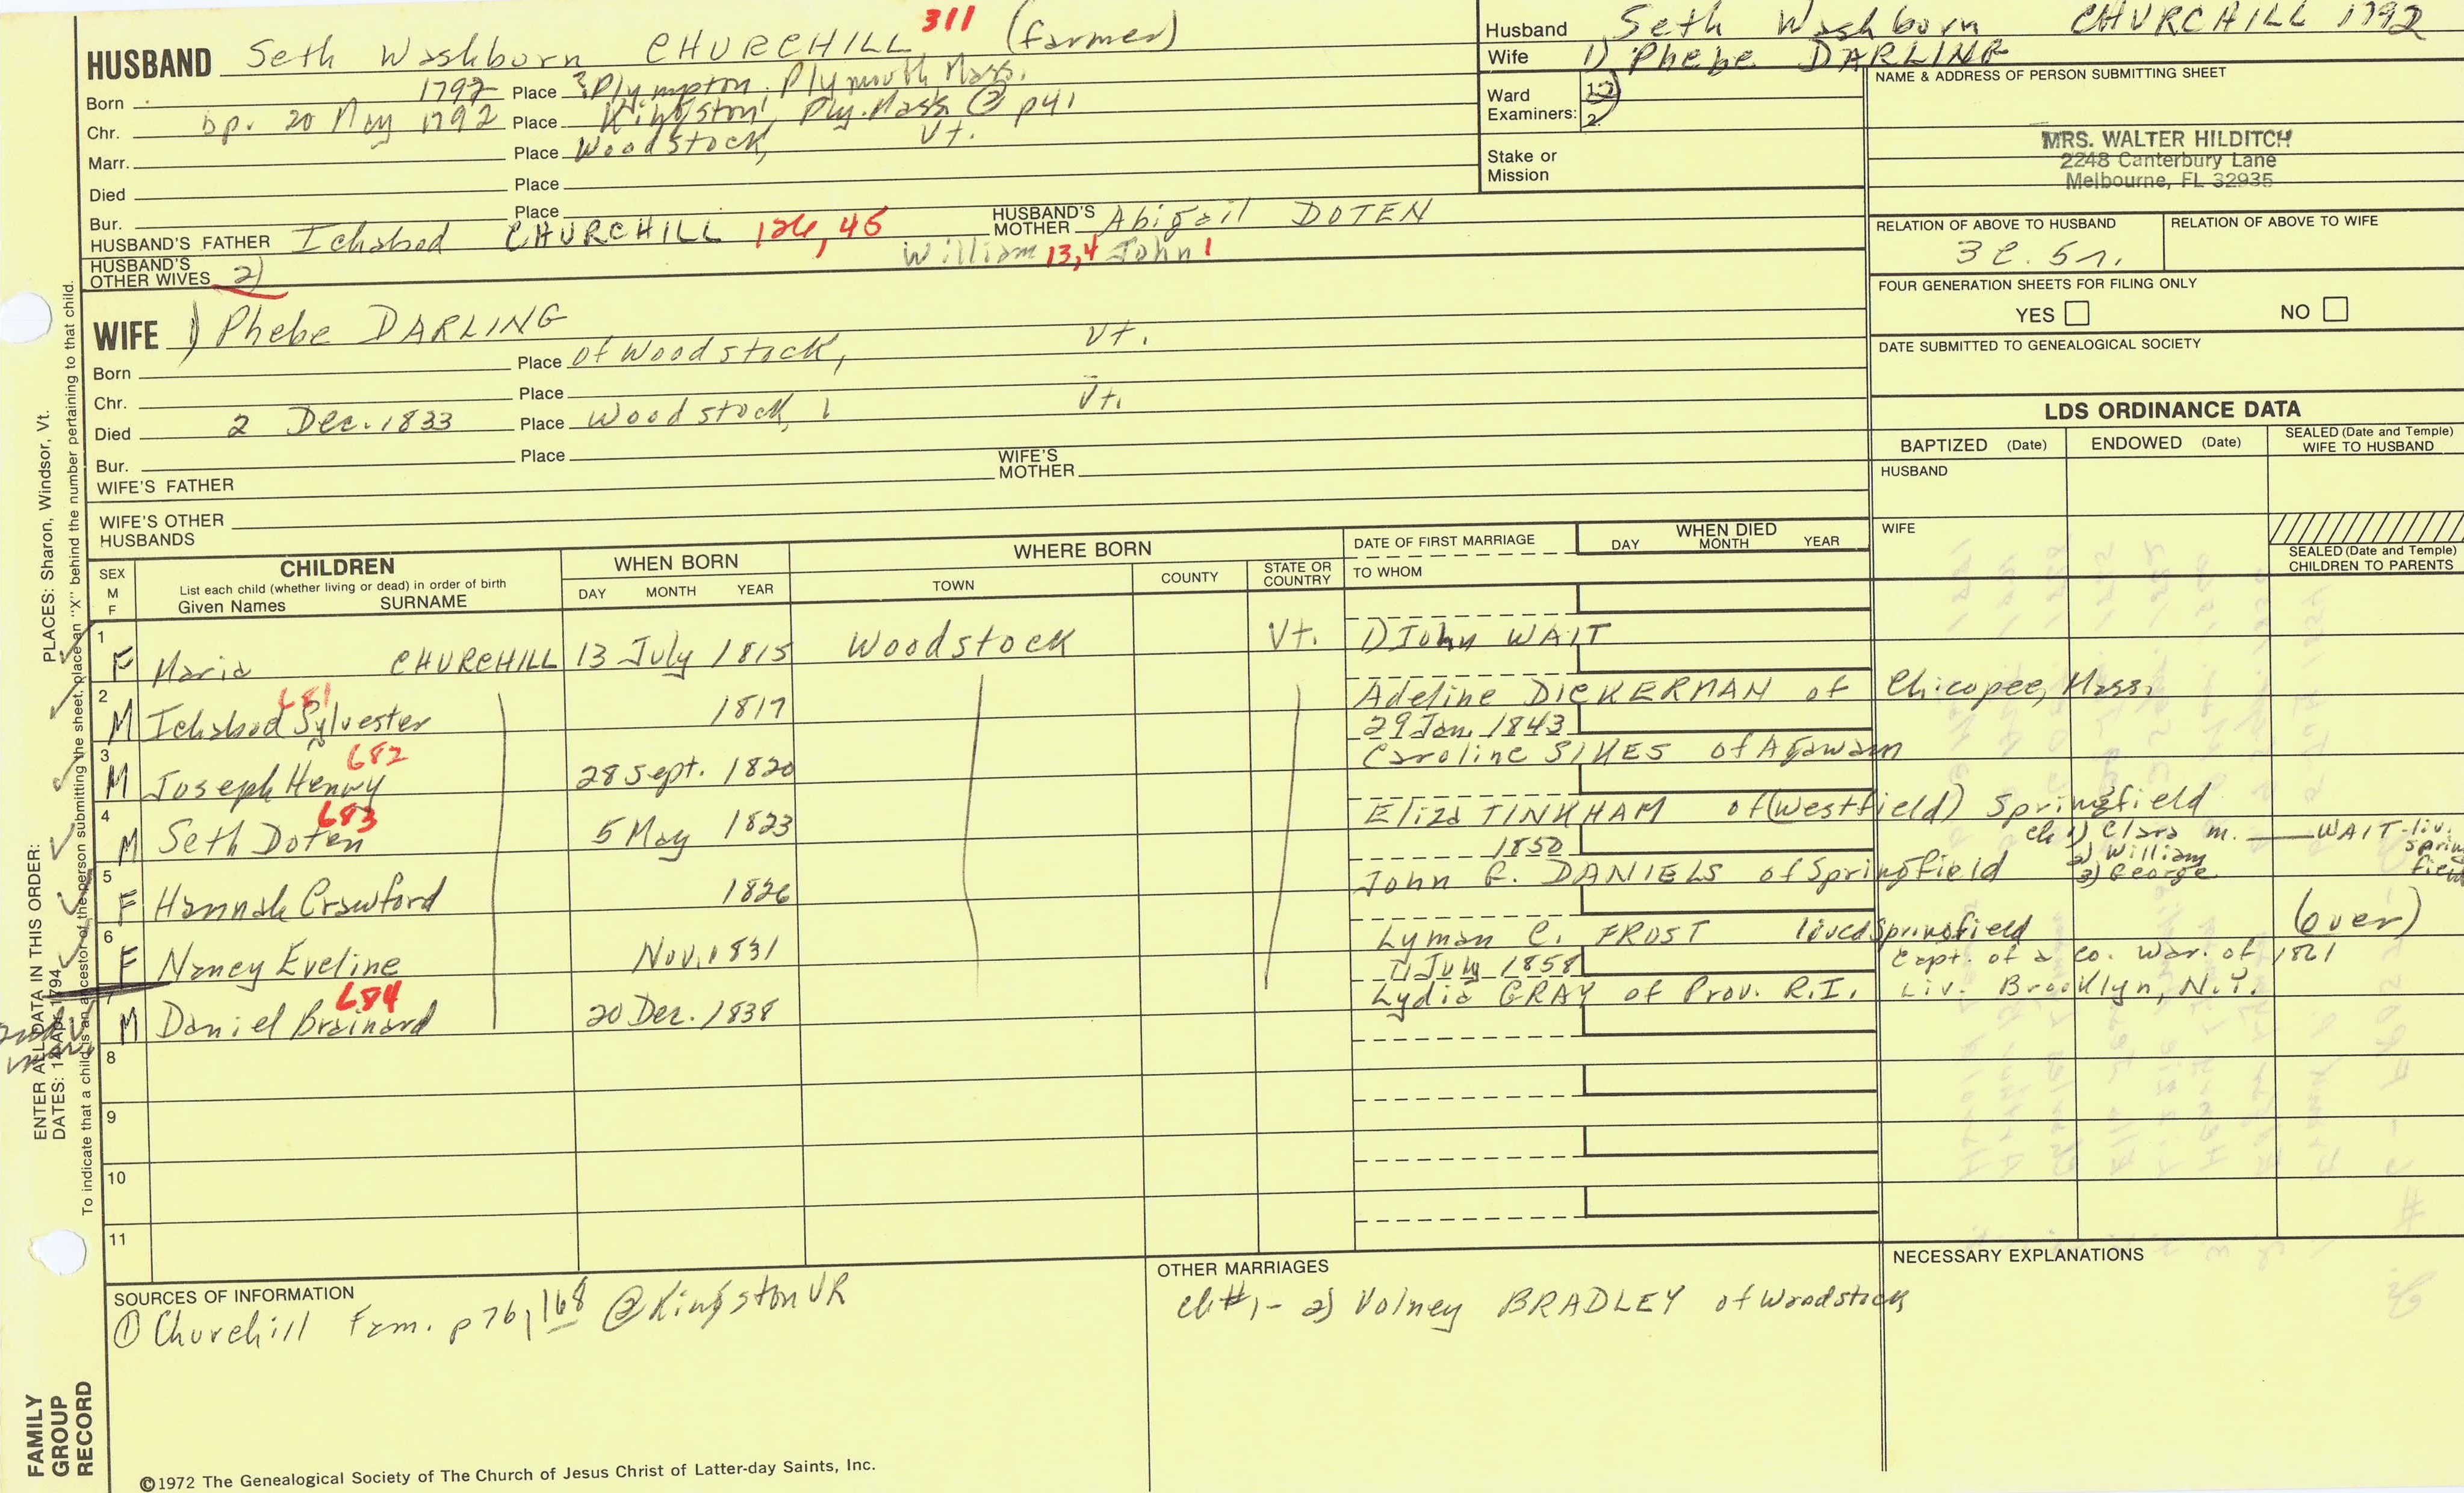 HUSBAND Seth Washborn CHURCHILL 311 (farmer)
Born 1792 Place ?Plympton, Plymouth, Mass.
Chr. bp. 20 May 1792 Place Kingston, Ply. Mass @ p41
Marr. Place Woodstock, Vt.
Died Place
Bur. Place
HUSBAND'S FATHER Ichabod CHURCHILL 126, 45 HUSBAND'S MOTHER Abigail DOTEN
William 13,4 John 1
HUSBAND'S OTHER WIVES 2)
WIFE 1) Phebe DARLING
Born Place of Woodstock, Vt.
Chr. Place
Died 2 Dec. 1833 Place Woodstock, Vt.
Bur. Place
WIFE'S FATHER WIFE'S MOTHER
WIFE'S OTHER HUSBANDS
Husband Seth Washborn CHURCHILL 1792
Wife 1) Phebe DARLING
Ward Examiners: 1. 2.
Stake or Mission
NAME & ADDRESS OF PERSON SUBMITTING SHEET
MRS. WALTER HILDITCH
2248 Canterbury Lane
Melbourne, FL 32935
RELATION OF ABOVE TO HUSBAND RELATION OF ABOVE TO WIFE
3C. 5r.
FOUR GENERATION SHEETS FOR FILING ONLY
YES NO
DATE SUBMITTED TO GENEALOGICAL SOCIETY
LDS ORDINANCE DATA
BAPTIZED (Date) ENDOWED (Date) SEALED (Date and Temple) WIFE TO HUSBAND
HUSBAND
WIFE
SEALED (Date and Temple) CHILDREN TO PARENTS
SEX M F CHILDREN List each child (whether living or dead) in order of birth Given Names SURNAME
WHEN BORN DAY MONTH YEAR
WHERE BORN TOWN COUNTY STATE OR COUNTRY
DATE OF FIRST MARRIAGE TO WHOM
WHEN DIED DAY MONTH YEAR
1 F Maria CHURCHILL 13 July 1815 Woodstock Vt. 1) John WAIT
2 M Ichabod Sylvester 681 1817 Adeline DICKERMAN of Chicopee, Mass.
29 Jan. 1843
3 M Joseph Henry 682 28 Sept. 1820 Caroline SIKES of Agawam
4 M Seth Doten 683 5 May 1823 Eliza TINKHAM of (Westfield) Springfield
ch 1) Clara m. WAIT-liv. Springfield
2) William
3) George
1850
5 F Hannah Crawford 1826 John R. DANIELS of Springfield
(over)
6 F Nancy Eveline Nov. 1831 Lyman C. FROST lived Springfield
11 July 1858 Capt. of a Co. War. of 1861
7 M Daniel Brainard 684 20 Dec. 1838 Lydia GRAY of Prov. R.I. Liv. Brooklyn, N.Y.
8
9
10
11
SOURCES OF INFORMATION
① Churchill Fam. p 76, 168 @ Kingston VR
OTHER MARRIAGES
ch #1 - 2) Volney BRADLEY of Woodstock
NECESSARY EXPLANATIONS
©1972 The Genealogical Society of The Church of Jesus Christ of Latter-day Saints, Inc.
FAMILY GROUP RECORD
ENTER ALL DATA IN THIS ORDER:
DATES: 12 Apr. 1794
PLACES: Sharon, Windsor, Vt.
To indicate that a child is an ancestor of the person submitting the sheet, place an "X" behind the number pertaining to that child.